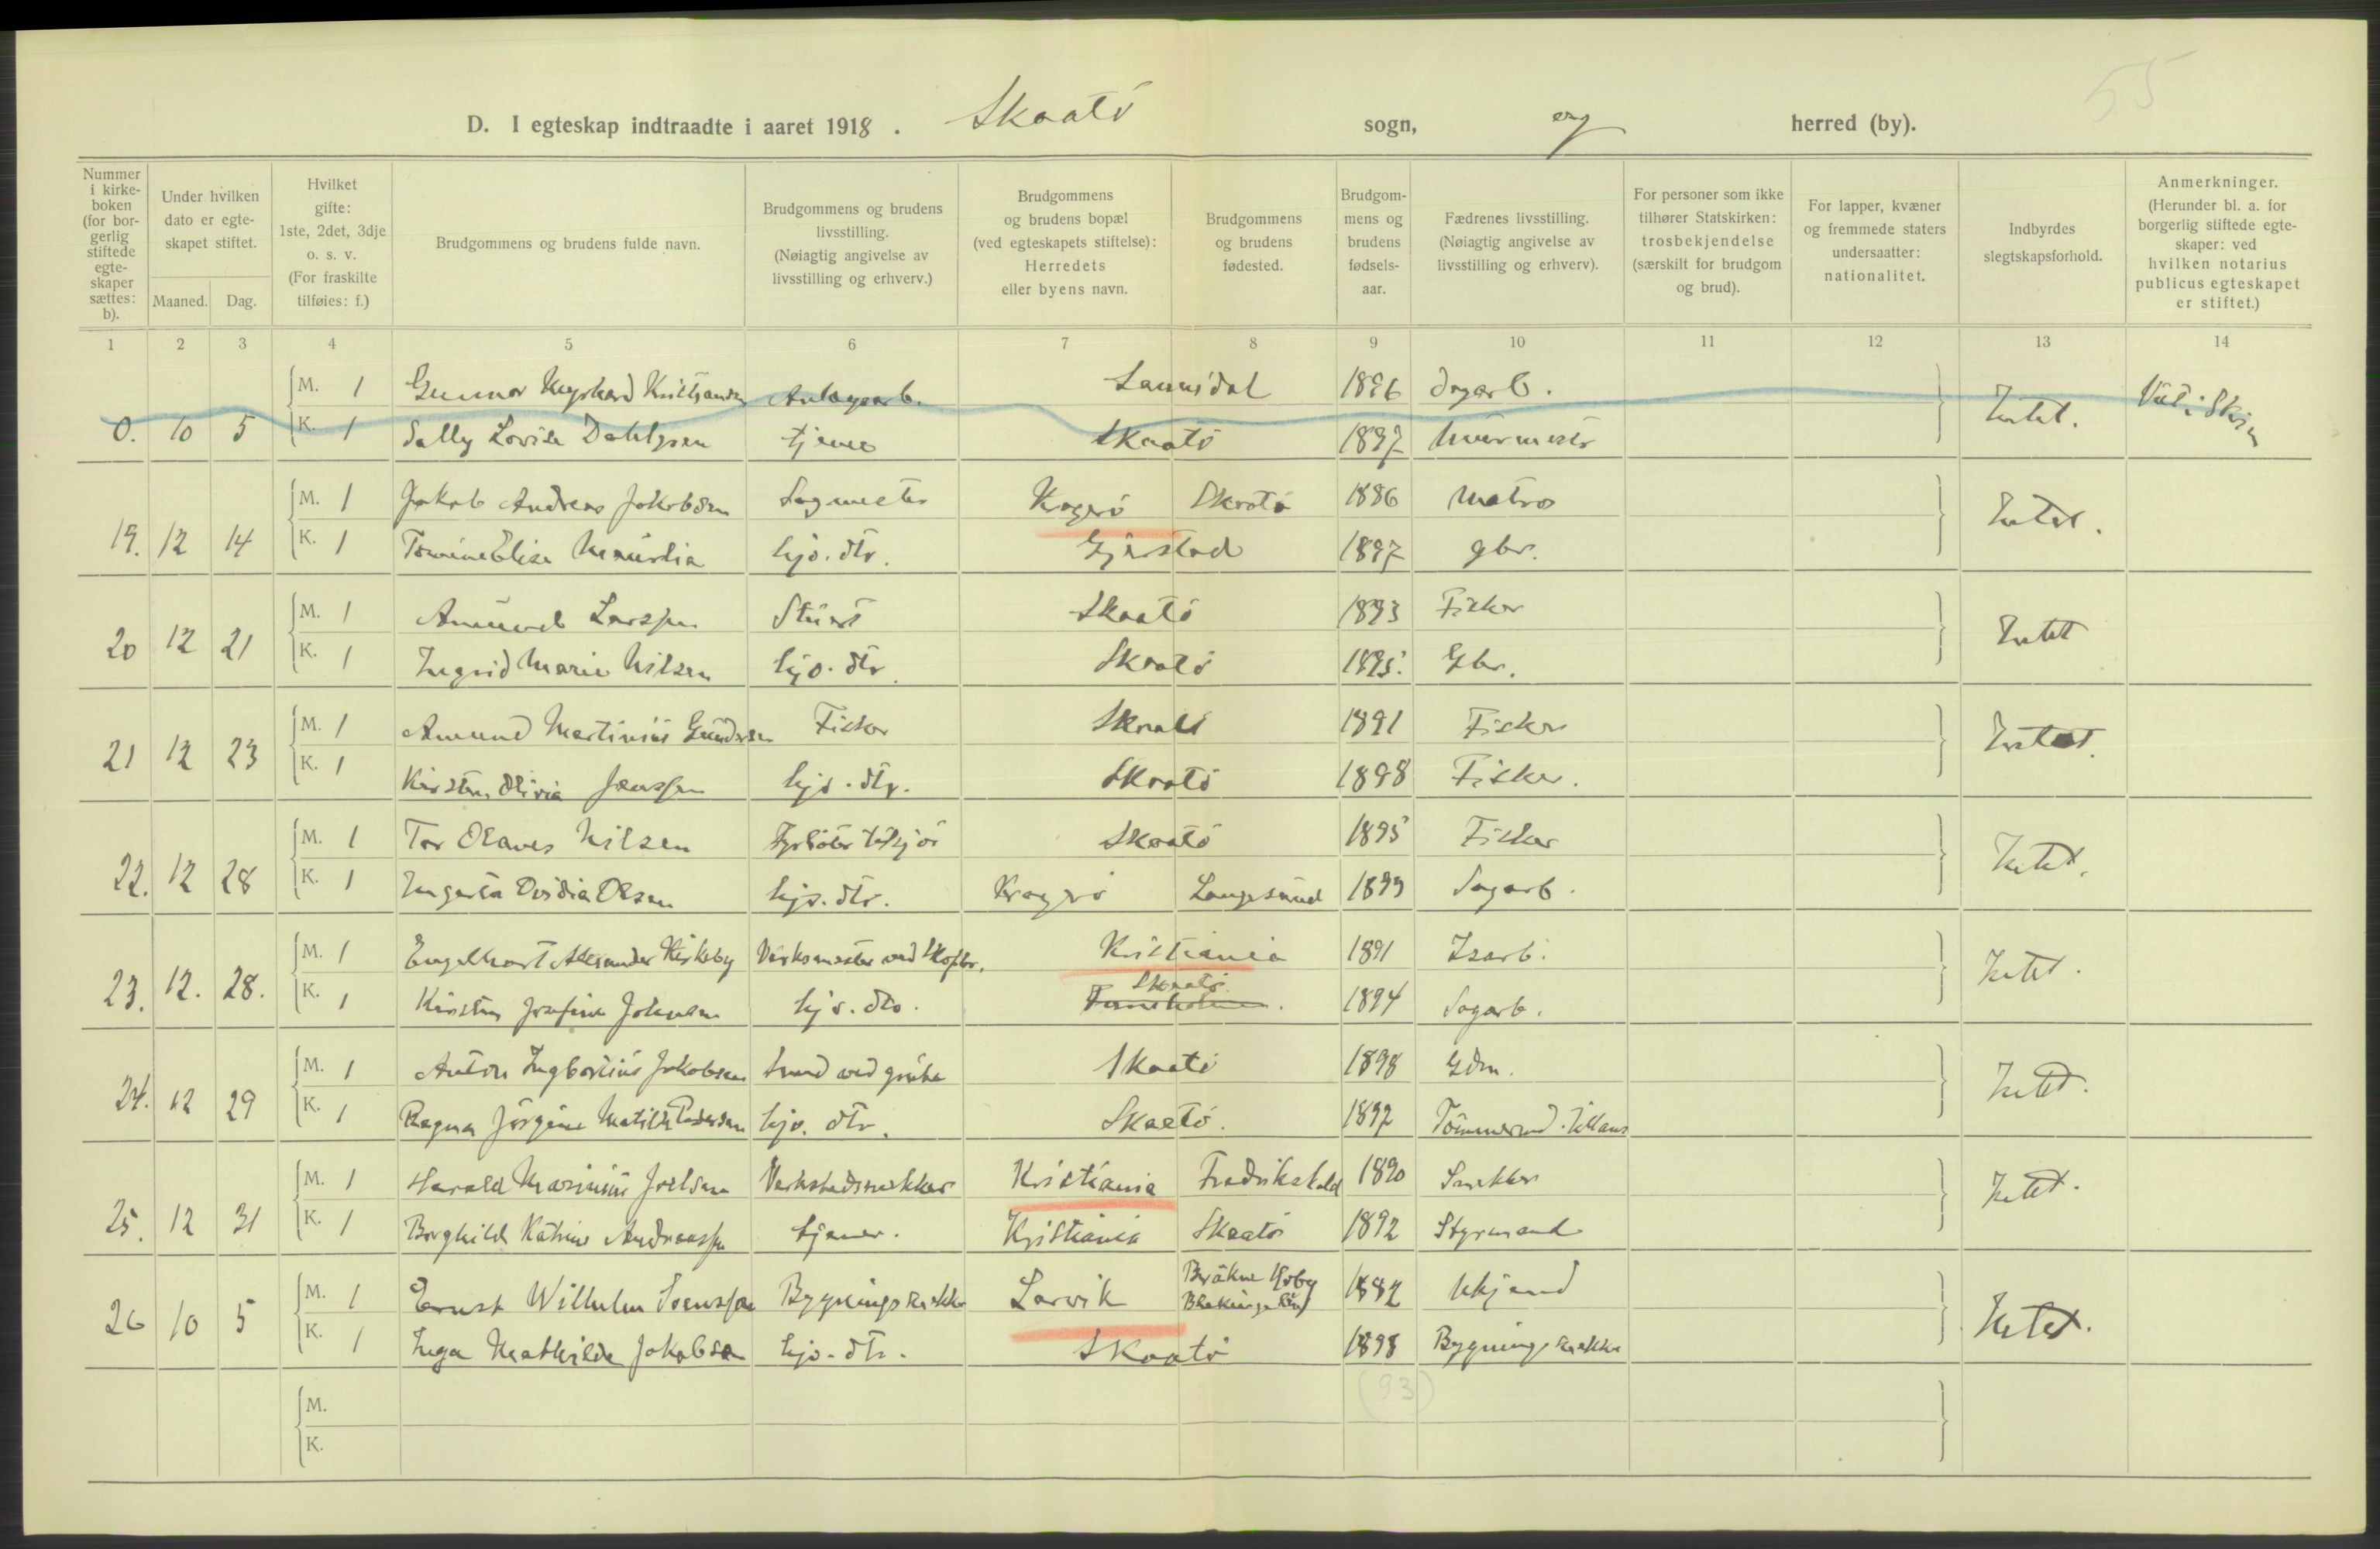 55
D. I egteskap indtraadte i aaret 1918. Skaatö sogn, og herred (by).
Nummer i kirkeboken (for borgerlig stiftede egteskaper sættes: b).
Under hvilken dato er egteskapet stiftet.
Maaned. Dag.
Hvilket gifte: 1ste, 2det, 3dje o. s. v. (For fraskilte tilføies: f.)
Brudgommens og brudens fulde navn.
Brudgommens og brudens livsstilling. (Nøiagtig angivelse av livsstilling og erhverv.)
Brudgommens og brudens bopæl (ved egteskapets stiftelse): Herredets eller byens navn.
Brudgommens og brudens fødested.
Brudgommens og brudens fødselsaar.
Fædrenes livsstilling. (Nøiagtig angivelse av livsstilling og erhverv).
For personer som ikke tilhører Statskirken: trosbekjendelse (særskilt for brudgom og brud).
For lapper, kvæner og fremmede staters undersaatter: nationalitet.
Indbyrdes slegtskapsforhold.
Anmerkninger. (Herunder bl. a. for borgerlig stiftede egteskaper: ved hvilken notarius publicus egteskapet er stiftet.)
1 2 3 4 5 6 7 8 9 10 11 12 13 14
M. 1 Gunnar Kristiansen Anlagsarb. Sannidal 1896 dagarb.
0. 10 5 K. 1 Sally Lovise Dahlgren tjener Skaatö 1897 Murmester Intet.
M. 1 Jakob Andreas Jakobsen Sagmester Kragerö Skaatö 1886 Matros
19. 12 14 K. 1 Tomine Elise hjv. dtr. Gjerstad 1897 gbr. Intet.
M. 1 Amund Larssen Stuert Skaatö 1893 Fisker
20 12 21 K. 1 Ingrid Marie Nilsen hjv. dtr. Skaatö 1895. Gbr. Intet
M. 1 Amund Martinius Gundersen Fisker Skaatö 1891 Fisker
21 12 23 K. 1 Kirsten Olivia Jenssen hjv. dtr. Skaatö 1898 Fisker. Intet.
M. 1 Tor Olaves Nilsen Fyrböter tilsjös Skaatö 1895 Fisker
22. 12 28 K. 1 Ingerta Ovidia Olsen hjv. dtr. Kragerö Langesund 1899 Sagarb. Intet.
M. 1 Engelhart Alexander Kirkeby Verksmester ved Skofbr. Kristiania 1891 Isarb.
23. 12. 28. K. 1 Kirsten Josefine Johnsen hjv. dtr. Skaatö. 1894 Sagarb. Intet.
M. 1 Anton Ingbortius Jakobsen Smed ved grube Skaatö 1898 Gdm.
24. 12 29 K. 1 Ragna Jörgine Matilde Pedersen hjv. dtr. Skaatö. 1897 Tömmermand. tilhavs Intet.
M. 1 Harald Marinius Joelsen Verkstedsnekker Kristiania Fredrikshald 1890 Snekker
25. 12 31 K. 1 Borghild Katrine Andreassen tjener. Kristiania Skaatö 1892 Styrmand Intet.
M. 1 Ernst Wilhelm Svensson Bygningssnekker Larvik Bräkne Hoby Blekinge län 1882 Ukjend
26 10 5 K. 1 Inga Mathilde Jakobsen hjv. dtr. Skaatö 1898 Bygningssnekker Intet.
(93)
M.
K.